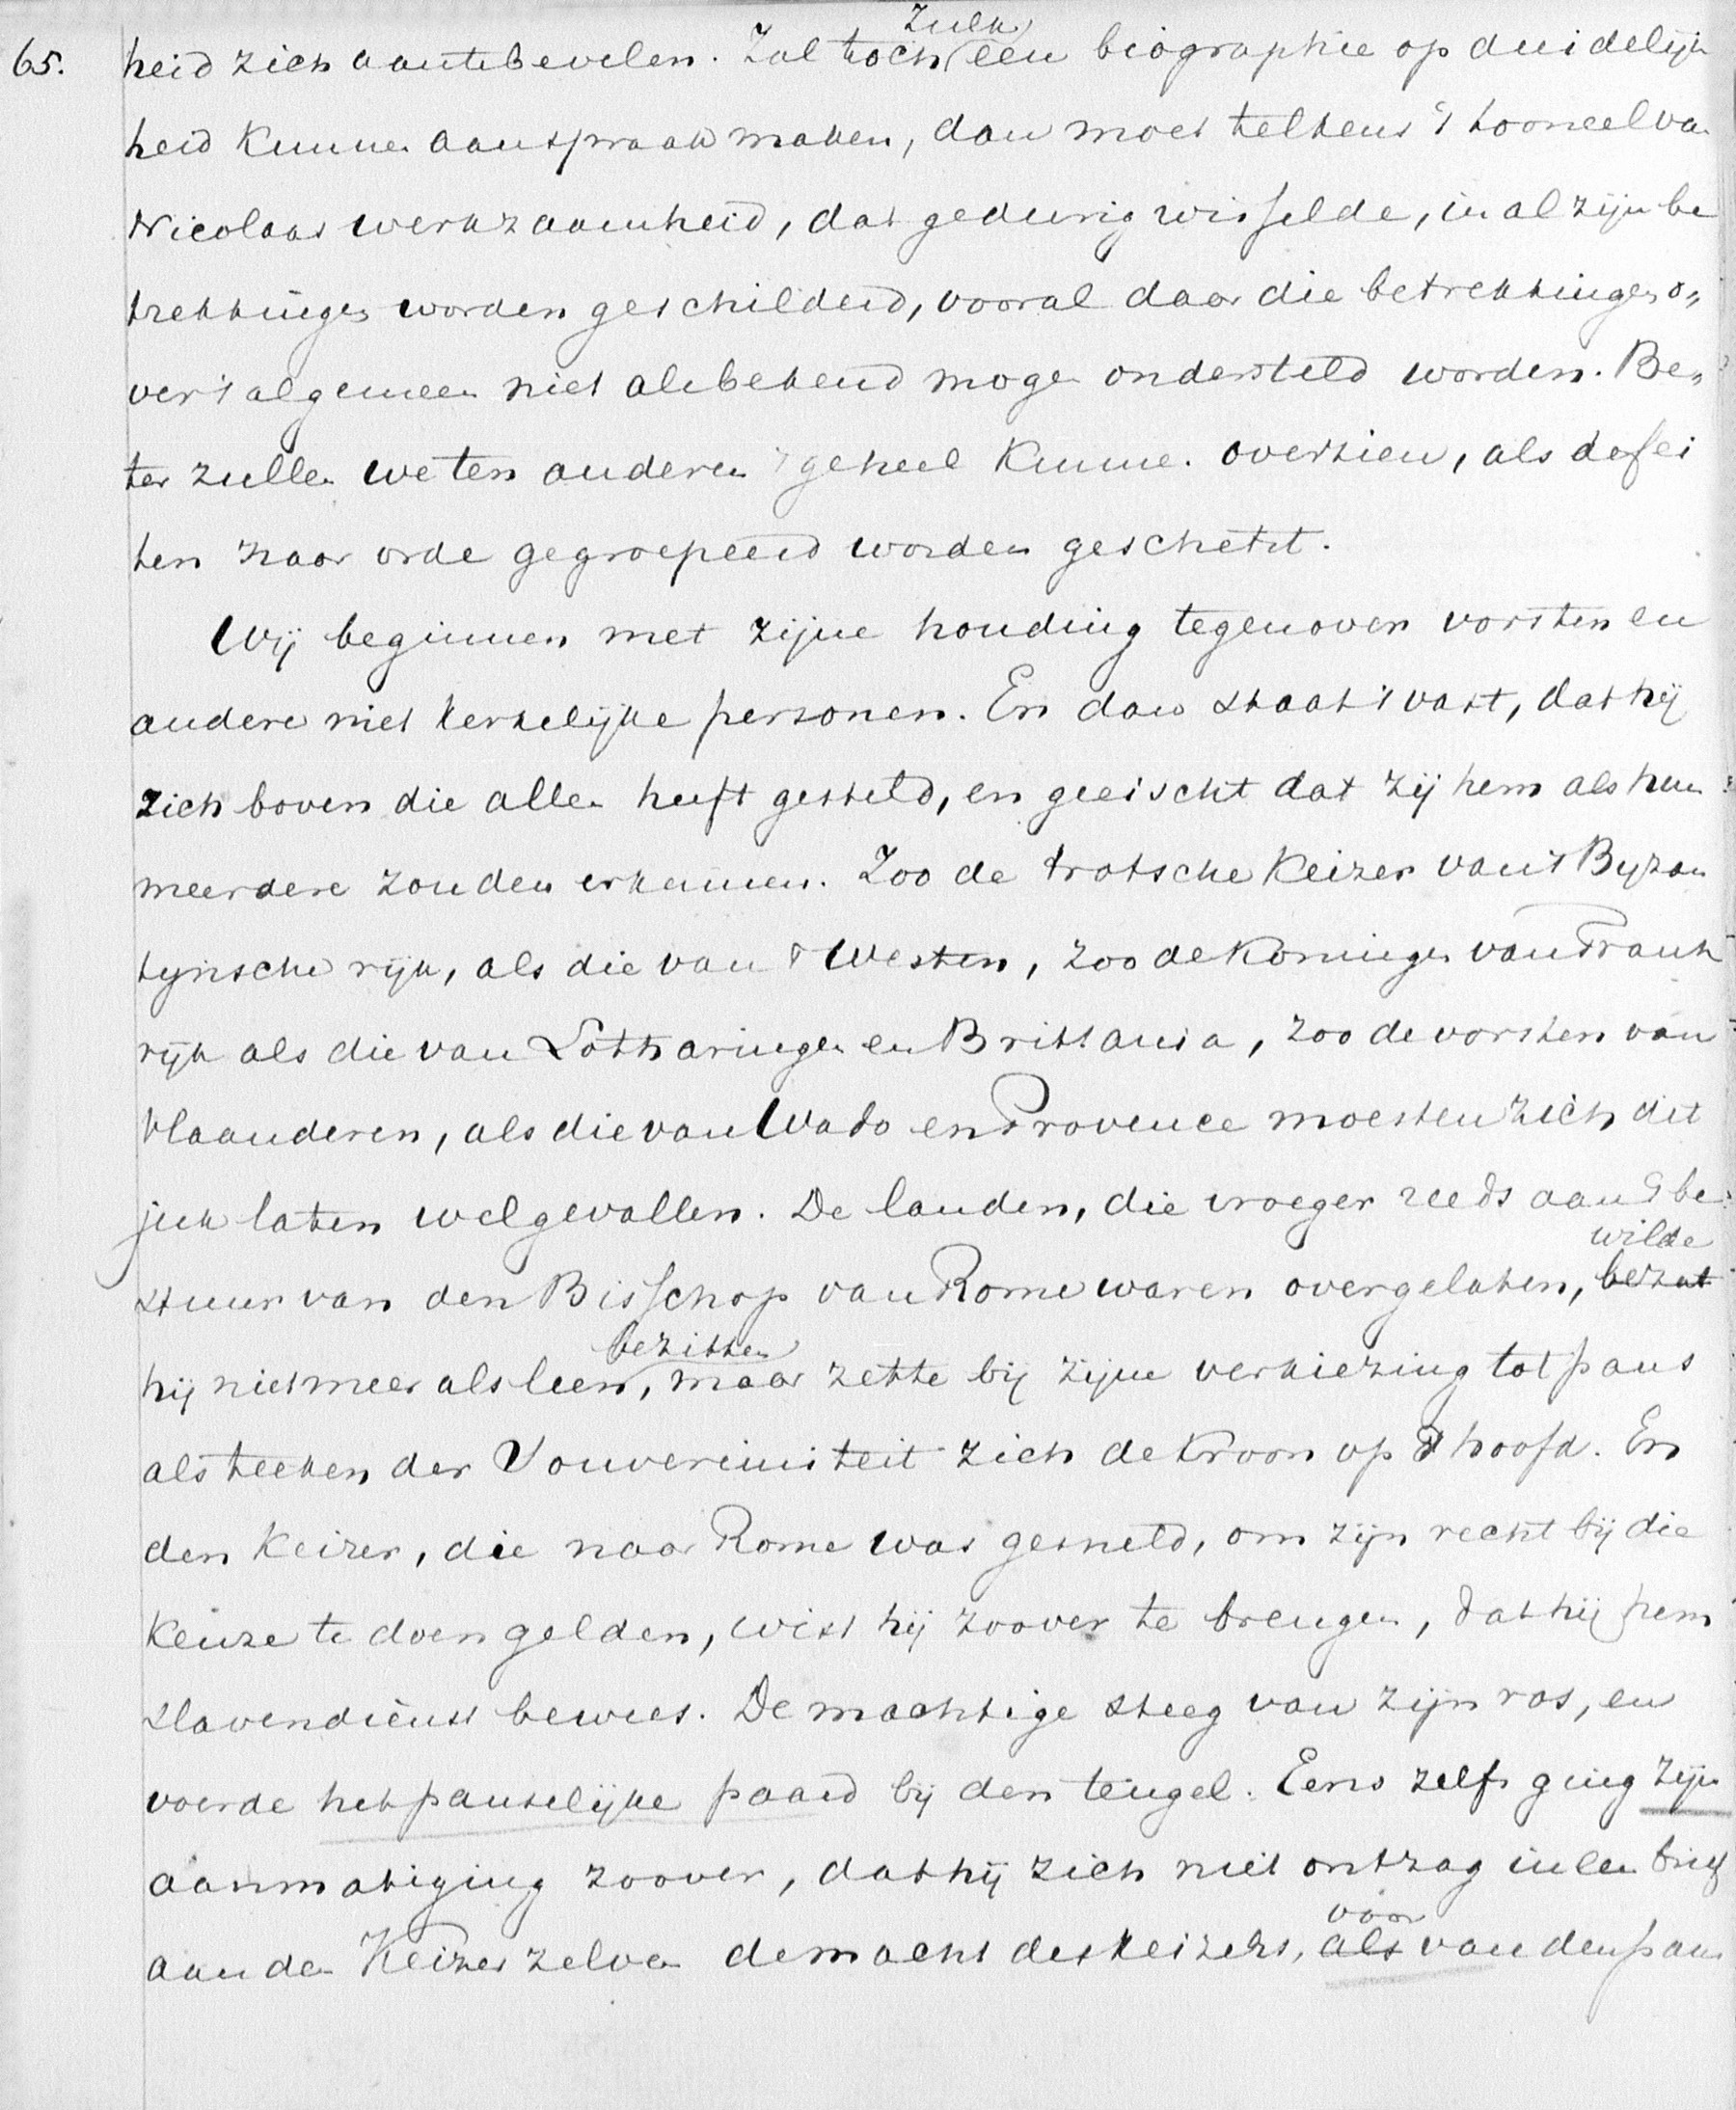 65.
zulk
heid zich aantebevelen. Zal toch een biographie op duidelijk
heid kunnen aanspraak maken, dan moet telkens 't tooneel van
Nicolaas werkzaamheid, dat gedurig wisselde, in al zijn be
trekkingen worden geschilderd, vooral daar die betrekkingen o„
ver 't algemeen niet als bekend mogen ondersteld worden. Be„
ter zullen we ten anderen 't geheel kunnen overzien, als de fei
ten naar orde gegroepeerd worden geschetst.
Wij beginnen met zijne houding tegenover vorsten en
andere niet kerkelijke personen. En dan staat 't vast, dat hij
zich boven die allen heeft gesteld, en geeischt dat zij hem als hun
meerdere zouden erkennen. Zoo de trotsche Keizer van 't Byzan
tynsche rijk, als die van 't Westen, zoo de Koningen van Frank
rijk als die van Lotharingen en Brittania, zoo de vorsten van
Vlaanderen, als die van Wado en Provence moesten zich dit
juk laten welgevallen. De landen, die vroeger reeds aan 't be
wilde
stuur van den Bisschop van Rome waren overgelaten, bezat
bezitten
hij niet meer als leen, maar zette bij zijne verkiezing tot paus
als teeken der Souvereiniteit zich de kroon op 't hoofd. En
den Keizer, die naar Rome was gesneld, om zijn recht bij die
keuze te doen gelden, wist hij zoover te brengen, dat hij hem
slavendienst bewees. De machtige steeg van zijn ros, en
voerde het pauselijke paard bij den teugel. Eens zelfs ging zijn
aanmatiging zoover, dat hij zich niet ontzag in een brief
voor
aan den Keizer zelven de macht des keizers, als van den paus